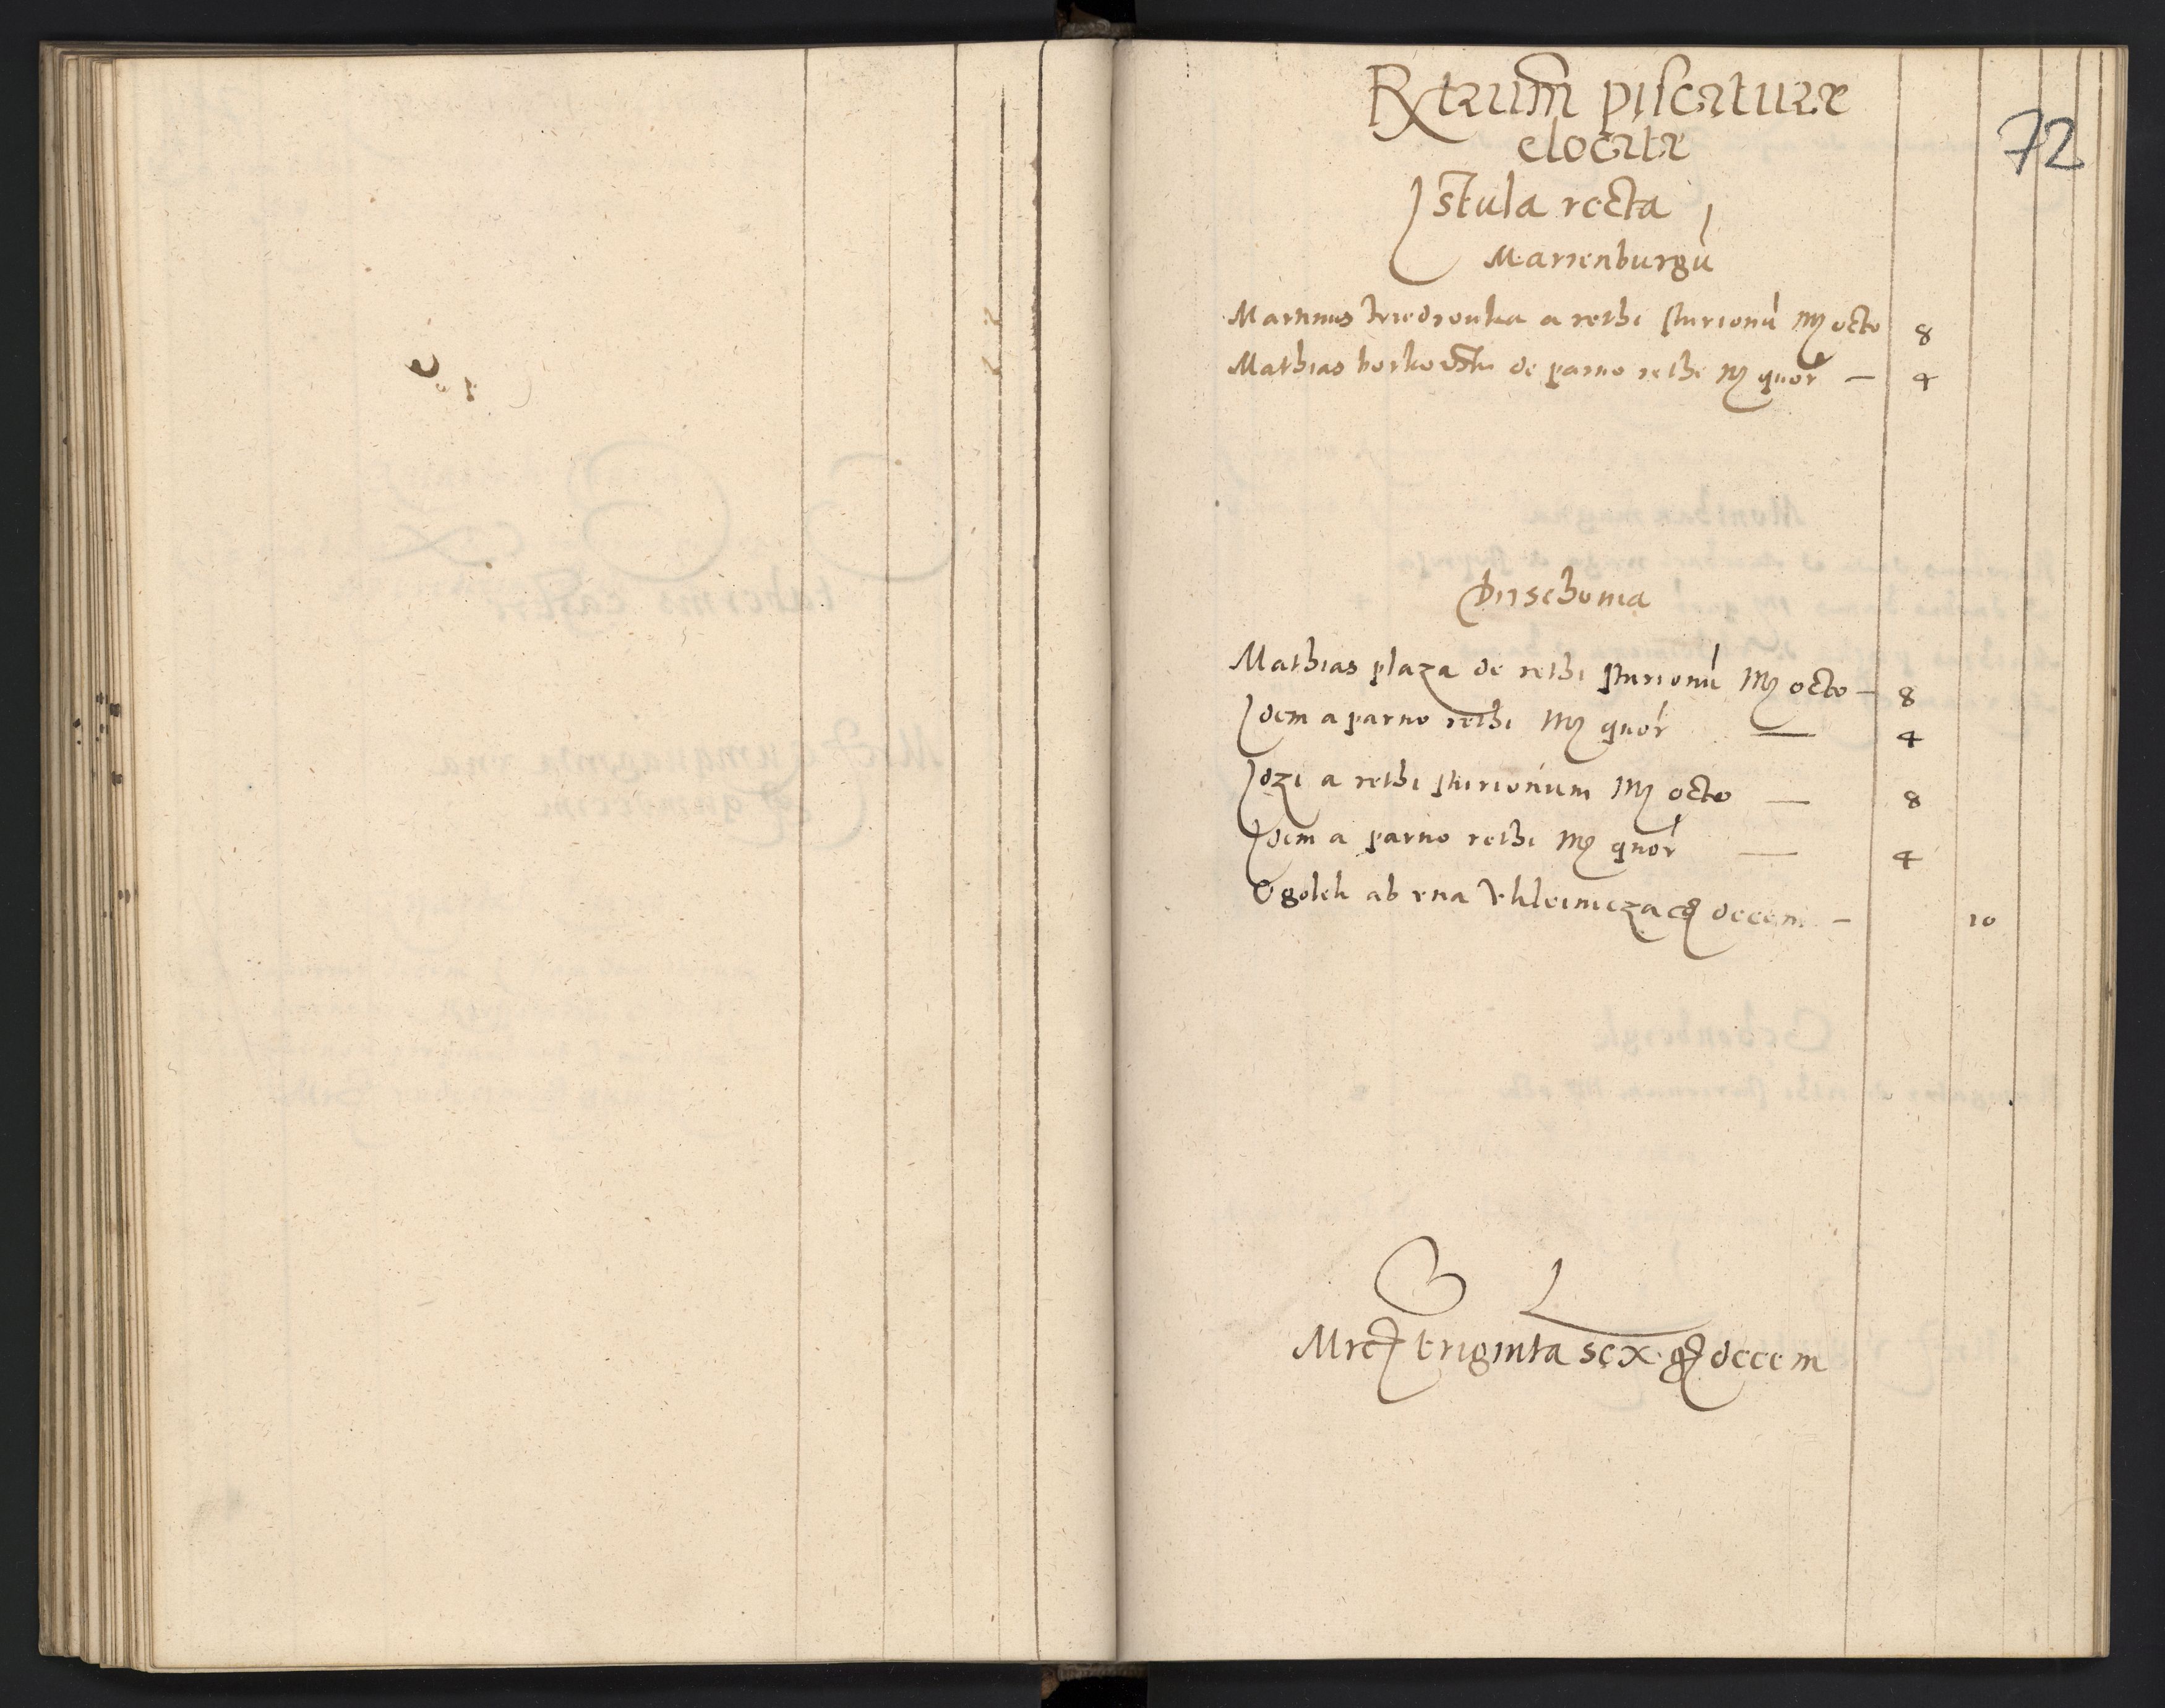 72
Rx trium piscature
elocate
Istula recta
Marienburgu
Martinus a rethi sturionu Mr octo 8
Mathias de paruo rethe Mr quor — 4
Dirschouia
Mathias plaza de rethi sturionu Mr octo — 8
Idem a paruo rethi Mr quor — 4
Jozi a rethi sturionum Mr octo — 8
Idem a paruo rethi Mr quor — 4
Ogolek ab vna gr decem — 10
Mrc triginta sex gr decem